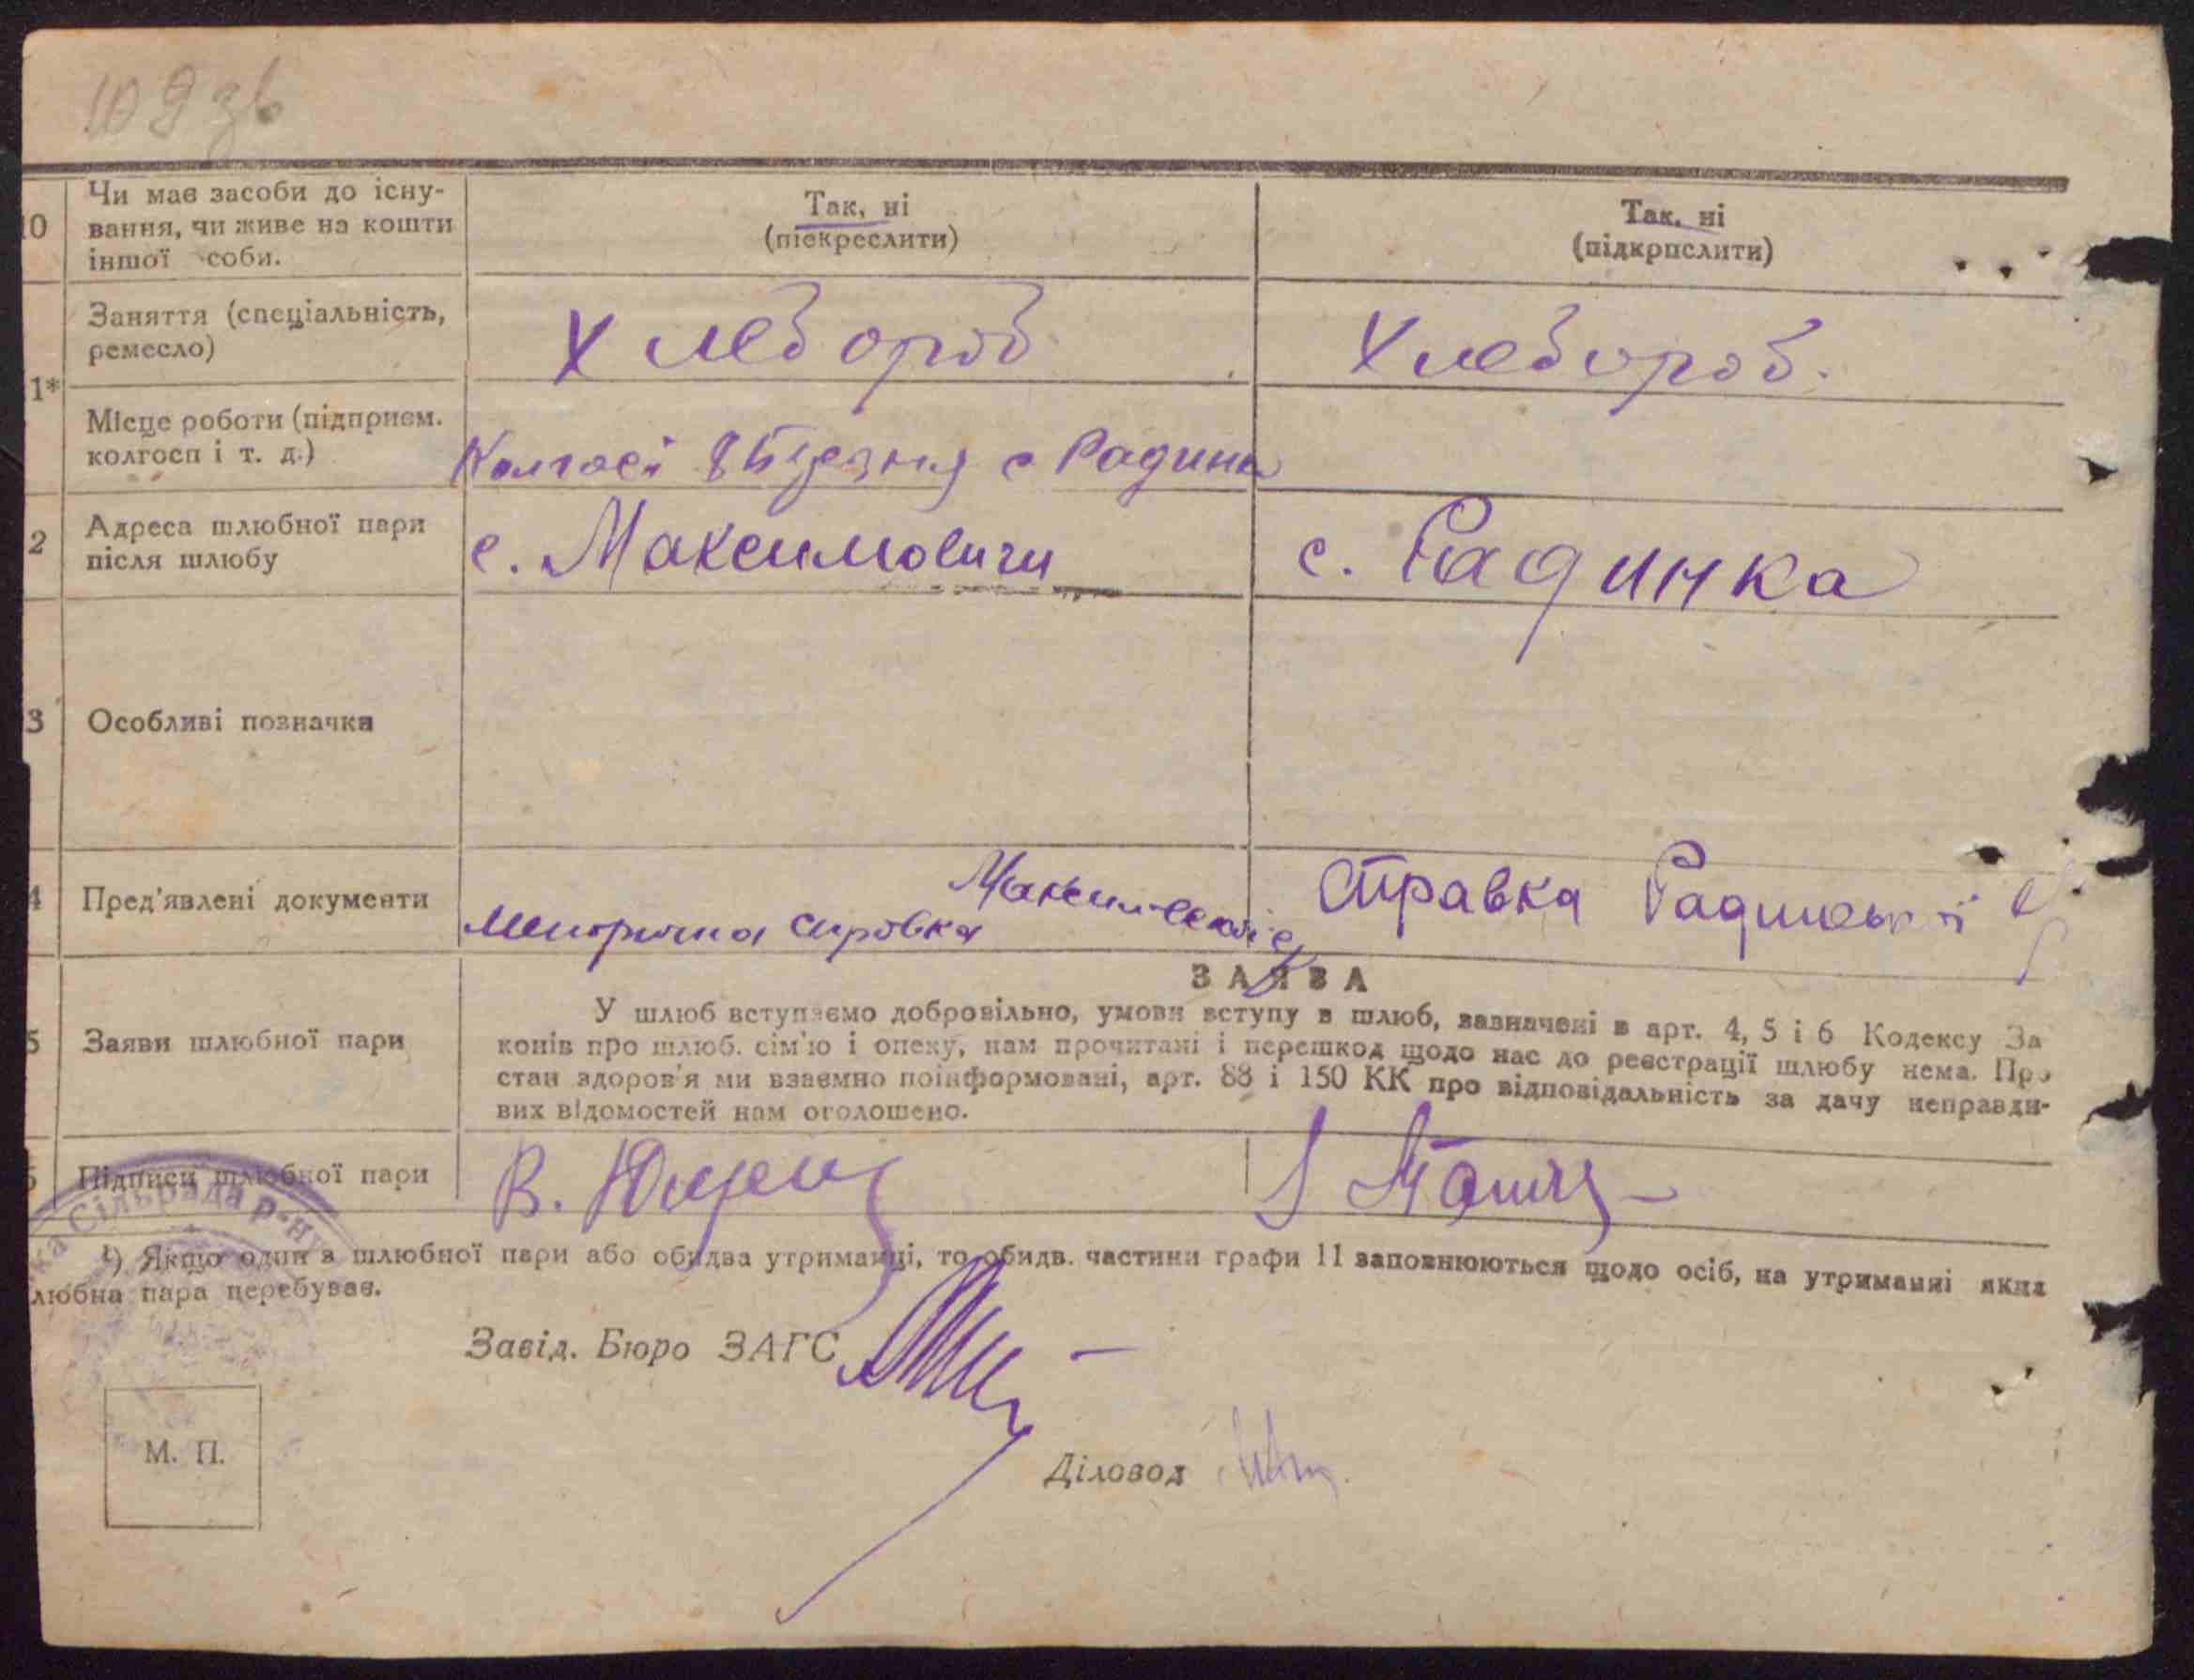 109 зв
10
Чи має засоби до існу-
вання, чи живе на кошти
іншої особи.
Так, ні
(піекреслити)
Так, ні
(підкрпслити)
1*
Заняття (спеціальність,
ремесло)
Хлебороб
Хлебороб.
Місце роботи (підприєм.
колгосп і т. д.)
Колгосп 8 Березня с Радинка
2
Адреса шлюбної пари
після шлюбу
с. Максимовичи
с. Радинка
3
Особливі позначки
4
Пред'явлені документи
справка
Справка Радинської
ЗАЯВА
5
Заяви шлюбної пари
У шлюб вступаємо добровільно, умови вступу в шлюб, зазначені в арт. 4, 5 і 6 Кодексу За
конів про шлюб. сім'ю і опеку, нам прочитані і перешкод щодо нас до реєстрації шлюбу нема. Про
стан здоров'я ми взаємно поінформовані, арт. 88 і 150 КК про відповідальність за дачу неправди-
вих відомостей нам оголошено.
6
Підписи шлюбної пари
В.
ка Сільрада р-н
¹) Якщо один з шлюбної пари або обидва утриманці, то обидв. частини графи 11 заповнюються щодо осіб, на утриманні яких
люб­на пара перебуває.
Завід. Бюро ЗАГС
Діловод
М. П.